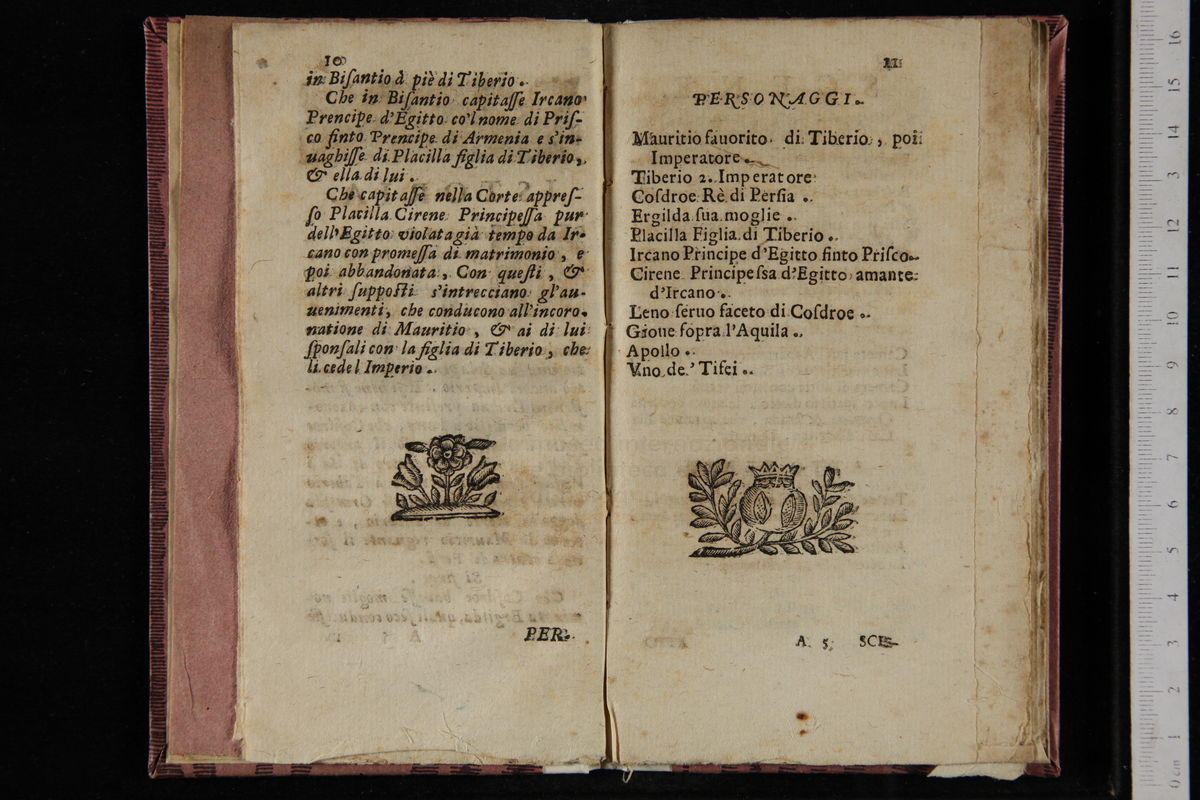 10
in Biſantio à piè di Tiberio.
Che in Biſantio capitaſſe Ircano
Prencipe d'Egitto co'l nome di Priſ-
co finto Prencipe di Armenia e s'in-
uaghiſſe di Placilla figlia di Tiberio,
& ella di lui.
Che capitaſſe nella Corte appreſ-
ſo Placilla Cirene Principeſſa pur
dell'Egitto violata già tempo da Ir-
cano con promeſſa di matrimonio, e
poi abbandonata, Con queſti, &
altri ſuppoſti s'intrecciano gl'au-
uenimenti, che conducono all'incoro-
natione di Mauritio, & ai di lui
ſponſali con la figlia di Tiberio, che
li cede l Imperio.
PER-
11
PERSONAGGI.
Mauritio fauorito di Tiberio, poi
Imperatore.
Tiberio 2. Imperatore
Coſdroe Rè di Perſia.
Ergilda ſua moglie.
Placilla Figlia di Tiberio.
Ircano Principe d'Egitto finto Priſco.
Cirene Principeſſa d'Egitto amante
d'Ircano.
Leno ſeruo faceto di Coſdroe.
Gioue ſopra l'Aquila.
Apollo.
Vno de' Tifei.
A 5 SCE-
16
15
14
13
12
11
10
9
8
7
6
5
4
3
2
1
0 cm